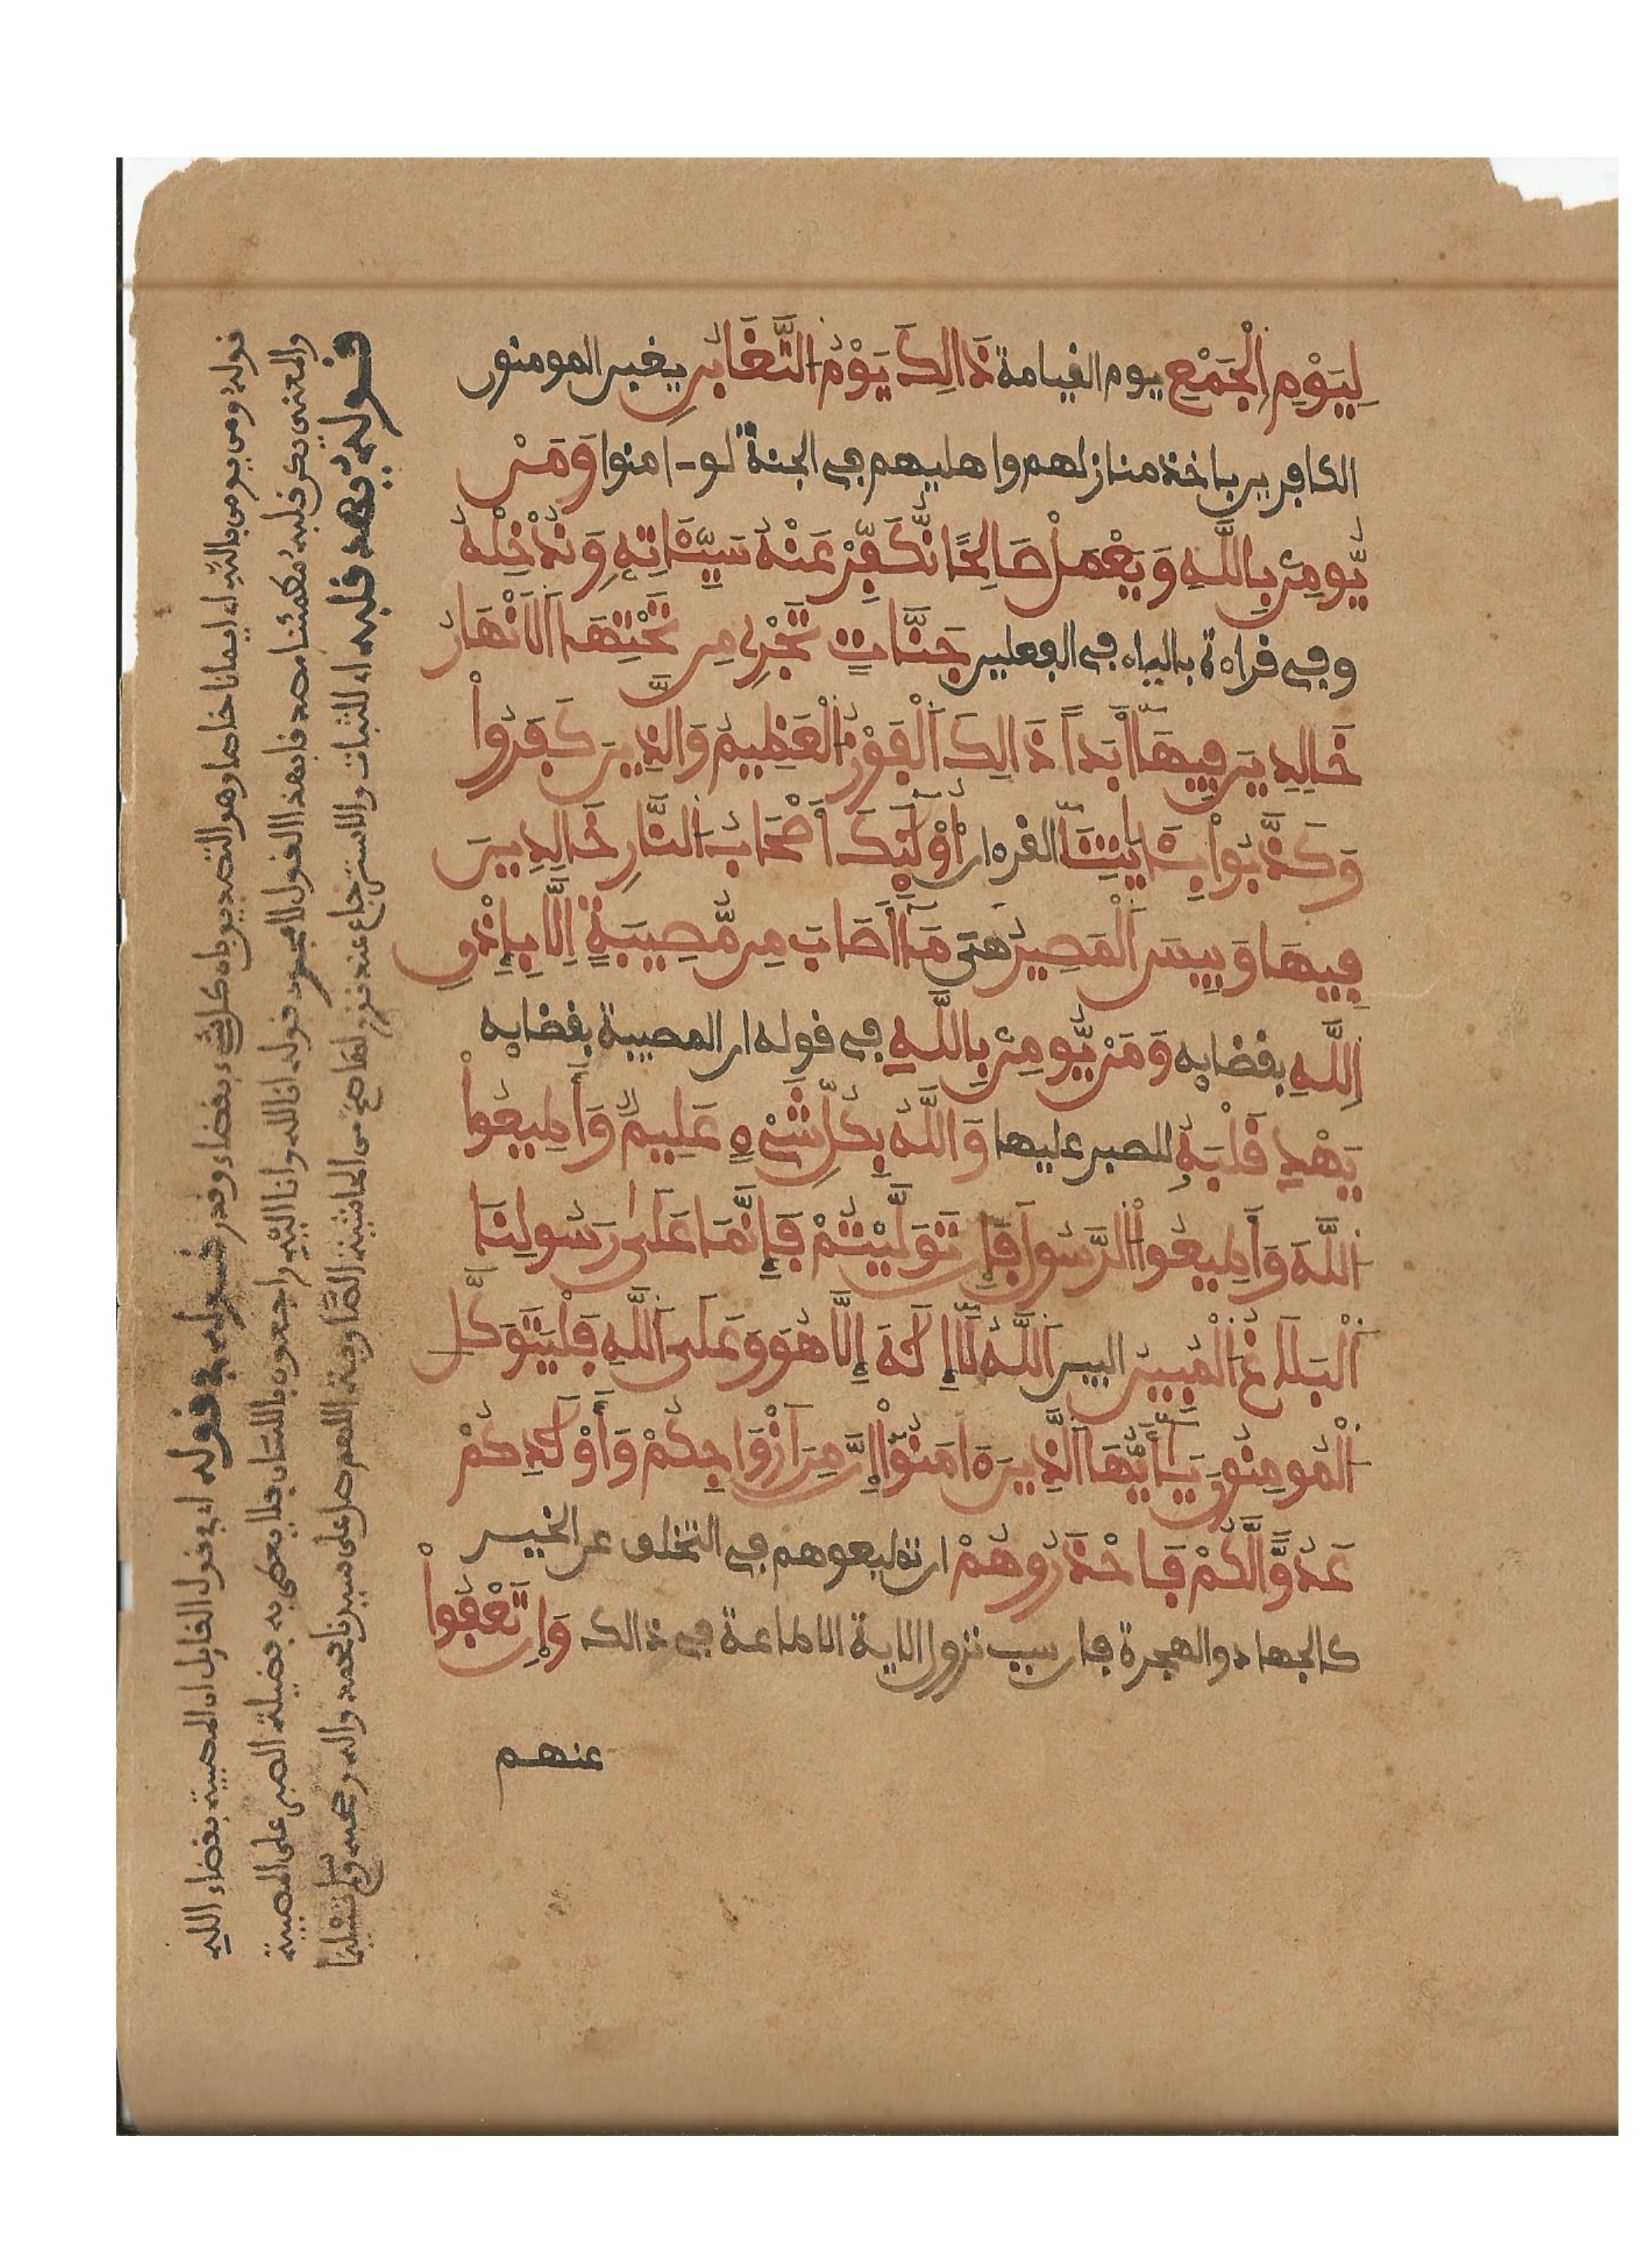 لِيَوْمِ الْجَمْعِ يوم القيامة ذَالِكَ يَوْمُ التَّغَابُنِ يغبن المومنون
الكافرين باخذ منازلهم واهليهم في الجنة لو ءامنوا وَمَنْ
يُّومِنْ بِاللَّهِ وَيَعْمَلْ صَالِحًا نُّكَفِّرْ عَنْهُ سَيِّئَاتِهِ وَنُدْخِلْهُ
وفي قراءة بالياء في الفعلين جَنَّاتٍ تَجْرِي مِن تَحْتِهَا الَانْهَارُ
خَالِدِينَ فِيهَا أَبَداً ذَالِكَ الْفَوْزُ الْعَظِيمُ وَالذِينَ كَفَرُوا
وَكَذَّبُوا بِئَايَاتِنَا القرءان أُوْلَئِكَ أَصْحَابُ النَّارِ خَالِدِينَ
فِيهَا وَبِيسَ الْمَصِيرُ هي مَا أَصَابَ مِن مُّصِيبَةٍ اِلَّا بِإِذْنِ
اللَّهِ بقضايه وَمَنْ يُّومِنْ بِاللَّهِ في قوله ان المصيبة بقضايه
يَهْدِ قَلْبَهُ للصبر عليها وَاللَّهُ بِكُلِّ شَيْءٍ عَلِيمٌ وَأَطِيعُوا
اللَّهَ وَأَطِيعُوا الرَّسُولَ فَإِن تَوَلَّيْتُمْ فَإِنَّمَا عَلَى رَسُولِنَا
الْبَلَاغُ الْمُبِينُ البين اللَّهُ لَا إِلَهَ إِلَّا هُوَ وَعَلَى اللَّهِ فَلْيَتَوَكَّلِ
الْمُومِنُونَ يَأَيُّهَا الَّذِينَ ءَامَنُوا إِنَّ مِنَ اَزْوَاجِكُمْ وَأَوْلَدِكُمْ
عَدُوًّا لَّكُمْ فَاحْذَرُوهُمْ ان تطيعوهم في التخلف عن الخير
كالجهاد والهجرة فان سبب نزول الاية الاطاعة في ذالك وَإِن تَعْفُوا
عنهم
قوله ومن يومن بالله اي ايمانا خاصا وهو التصديق بان كل شيء بقضاء وقدر قوله في قوله اي في قول القايل ان المصيبة بقضاء الله
والمعنى يكن قلبه مطمئنا مصدقا بهذا القول لا مجرد قوله انا لله وانا اليه راجعون باللسان فلا يعطى به فضيلة الصبر على المصيبة
قوله يهد قلبه اي للثبات والاسترجاع عند نزولها صح من الحاشية الصاوية اللهم صل على سيدنا محمد واله وصحبه وسلم تسليما